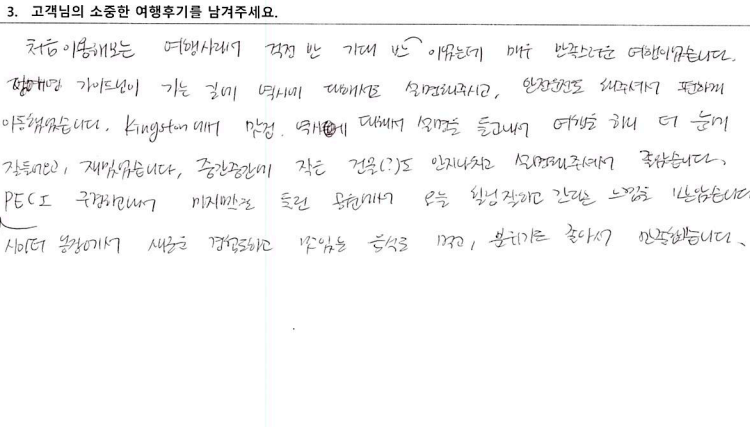 3. 고객님의 소중한 여행후기를 남겨주세요.
처음 이용해보는 여행사라서 걱정 반 기대 반 이었는데 매우 만족스러운 여행이었습니다.
가이드님이 가는 길에 역사에 대해서도 설명해주시고, 안전운전도 해주셔서 편하게
이동했었습니다. Kingston에서 맛점, 역사에 대해서 설명을 듣고나서 여행을 하니 더 눈에
잘들어오고, 재밌었습니다, 중간중간에 작은 건물(?)도 안지나치고 설명해주셔서 좋았습니다.
PEC도 구경하고나서 마지막으로 들린 공원에서 오늘 힐링 작하고 간다는 느낌을 받았습니다
사이더 농장에서 새로운 경험도하고 맛있는 음식을 먹고, 분위기도 좋아서 만족했습니다.